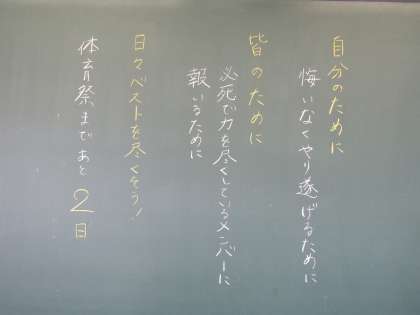 自分のために
悔いなくやり遂げるために
皆のために
必死で力を尽くしているメンバーに
報いるために
日々ベストを尽くそう!
体育祭まであと2日